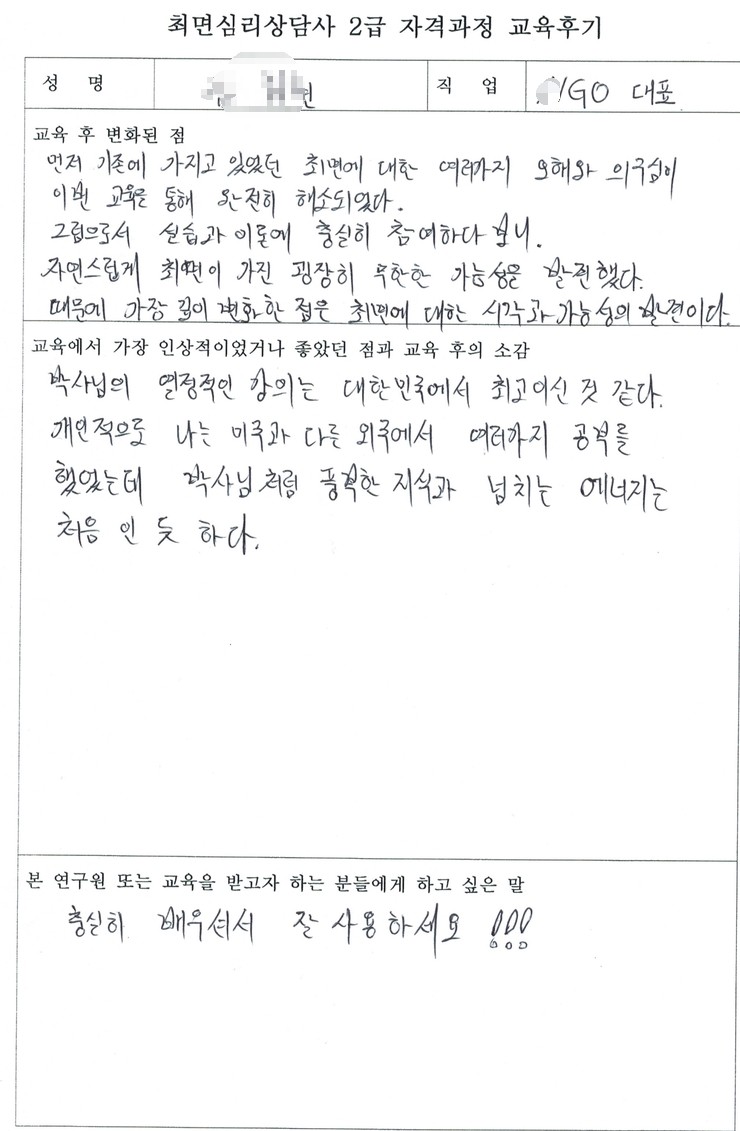 최면심리상담사 2급 자격과정 교육후기
성 명
직 업 NGO 대표
교육 후 변화된 점
먼저 기존에 가지고 있었던 최면에 대한 여러가지 오해와 의구심이
이번 교육을 통해 완전히 해소되었다.
그럼으로서 실습과 이론에 충실히 참여하다 보니.
자연스럽게 최면이 가진 굉장히 무한한 가능성을 발견했다.
때문에 가장 깊이 변화한 점은 최면에 대한 시각과 가능성의 발견이다.
교육에서 가장 인상적이었거나 좋았던 점과 교육 후의 소감
박사님의 열정적인 강의는 대한민국에서 최고이신 것 같다.
개인적으로 나는 미국과 다른 외국에서 여러가지 공부를
했었는데 박사님처럼 풍부한 지식과 넘치는 에너지는
처음 인 듯 하다.
본 연구원 또는 교육을 받고자 하는 분들에게 하고 싶은 말
충실히 배우셔서 잘 사용하세요 !!!